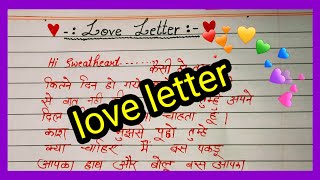 -: Love Letter :-
Hi Sweatheart....... कैसी
कितने दिन हो गये
से बात नही तुम्हे अपने
दिल चाहता हूँ।
काश मुझसे पूछो तुम्हे
क्या चाहिए मैं बस पकडू
आपका हाथ और बोलू बस आपका
love letter